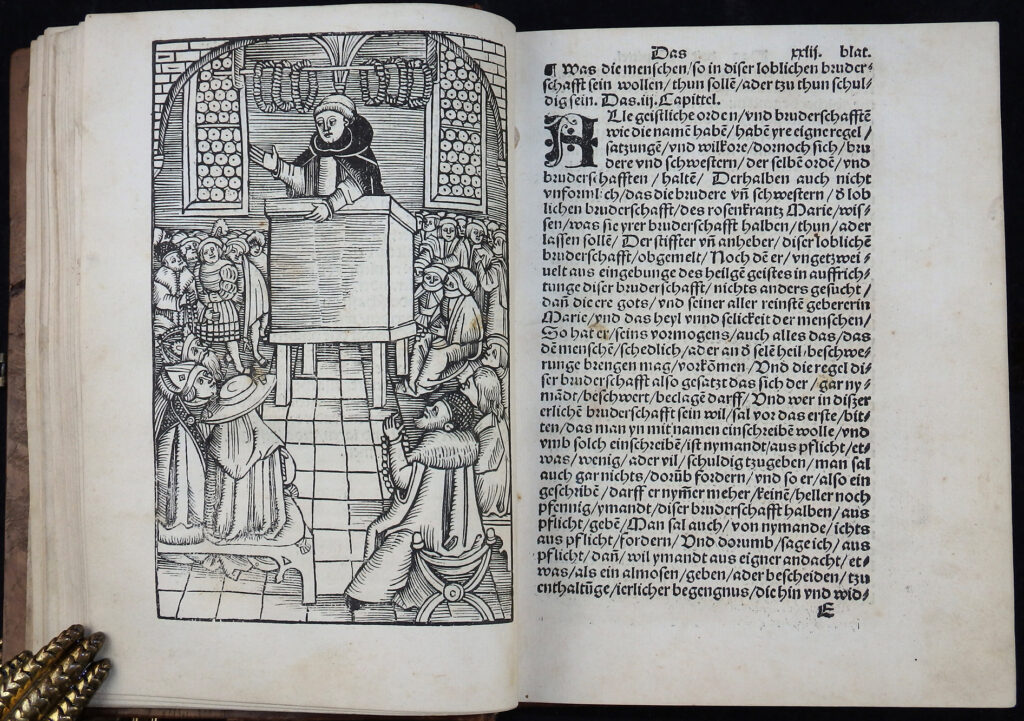 Das xxiij. blat.
¶ Was die menschen/so in diser loblichen bruder⸗
schafft sein wollen/ thun sollē/ader tzu thun schul⸗
dig sein. Das .iij. Capittel.
ALle geistliche orden/vnd bruderschafftē
wie die namē habē/ habē yre eigne regel/
satzungē/vnd wilkore/dornoch sich/bru
dere vnd schwestern/ der selbē ordē/ vnd
bruderschafften/ haltē/ Derhalben auch nicht
vnformlich/das die brudere vn̄ schwestern/ d̕ lob
lichen bruderschafft/des rosenkrantz Marie/wis⸗
sen/was sie yrer bruderschafft halben/thun/ader
lassen sollē/ Der stiffter vn̄ anheber/diser loblichē
bruderschafft/obgemelt/ Noch dē er/vngetzwei⸗
uelt aus eingebunge des heilgē geistes in auffrich⸗
tunge diser bruderschafft/ nichts anders gesucht/
dan̄ die ere gots/vnd seiner aller reinstē gebererin
Marie/vnd das heyl vnnd selickeit der menschen/
So hat er/seins vormogens/auch alles das/das
dē menschē/schedlich/ader an d̕ selē heil/beschwe⸗
runge brengen mag/vorkōmen/Vnd die regel di⸗
ser bruderschafft also gesatzt das sich der/gar ny⸗
mādt/beschwert/beclagē darff/ Vnd wer in diszer
erlichen bruderschafft sein wil/sal vor das erste/bit⸗
ten/das man yn mit namen einschreibē wolle/vnd
vmb solch einschreibē/ist nymandt/aus pflicht/et⸗
was/wenig/ader vil/schuldig tzugeben/man sal
auch gar nichts/dorūb fordern/vnd so er/also ein
geschribē/ darff er nym̄er meher/keinē/heller noch
pfennig/ymandt/diser bruderschafft halben/aus
pflicht/gebē/Man sal auch/von nymande/ichts
aus pflicht/fordern/ Vnd dorumb/sage ich/aus
pflicht/dan̄/wil ymandt aus eigner andacht/et⸗
was/als ein almosen/geben/ader bescheiden/tzu
enthaltūge/ierlicher begengnus/die hin vnd wid⸗
E